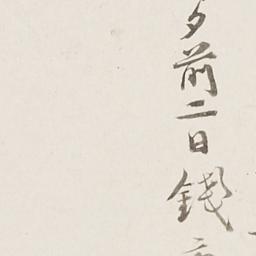 夕前二日錢